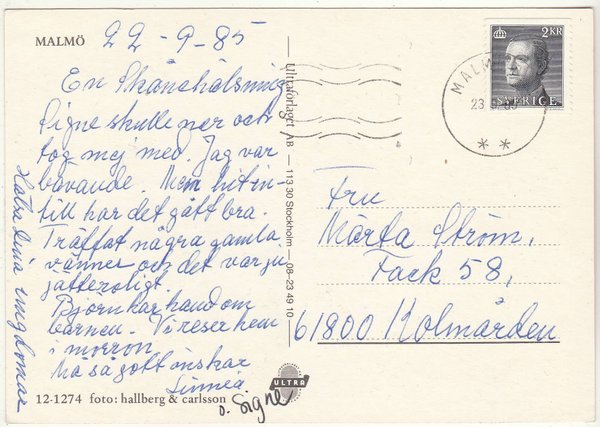 MALMÖ
22-9-85
En Skånehälsning
Signe skulle ner och
tog mej med. Jag var
bavande. Men hitin-
till har det gått bra.
Träffat några gamla
vänner och det var ju
jätteroligt.
Björn har hand om
barnen. Vi reser hem
i morron.
Må så gott önskar
Linnea
o. Signe
Hälsa dina ungdomar
12-1274 foto: hallberg & carlsson
Ultraförlaget AB — 113 30 Stockholm — 08-23 49 10
ULTRA
2KR
SVERIGE
MALM
23
Fru
Märta Ström,
Fack 58,
61800 Kolmården